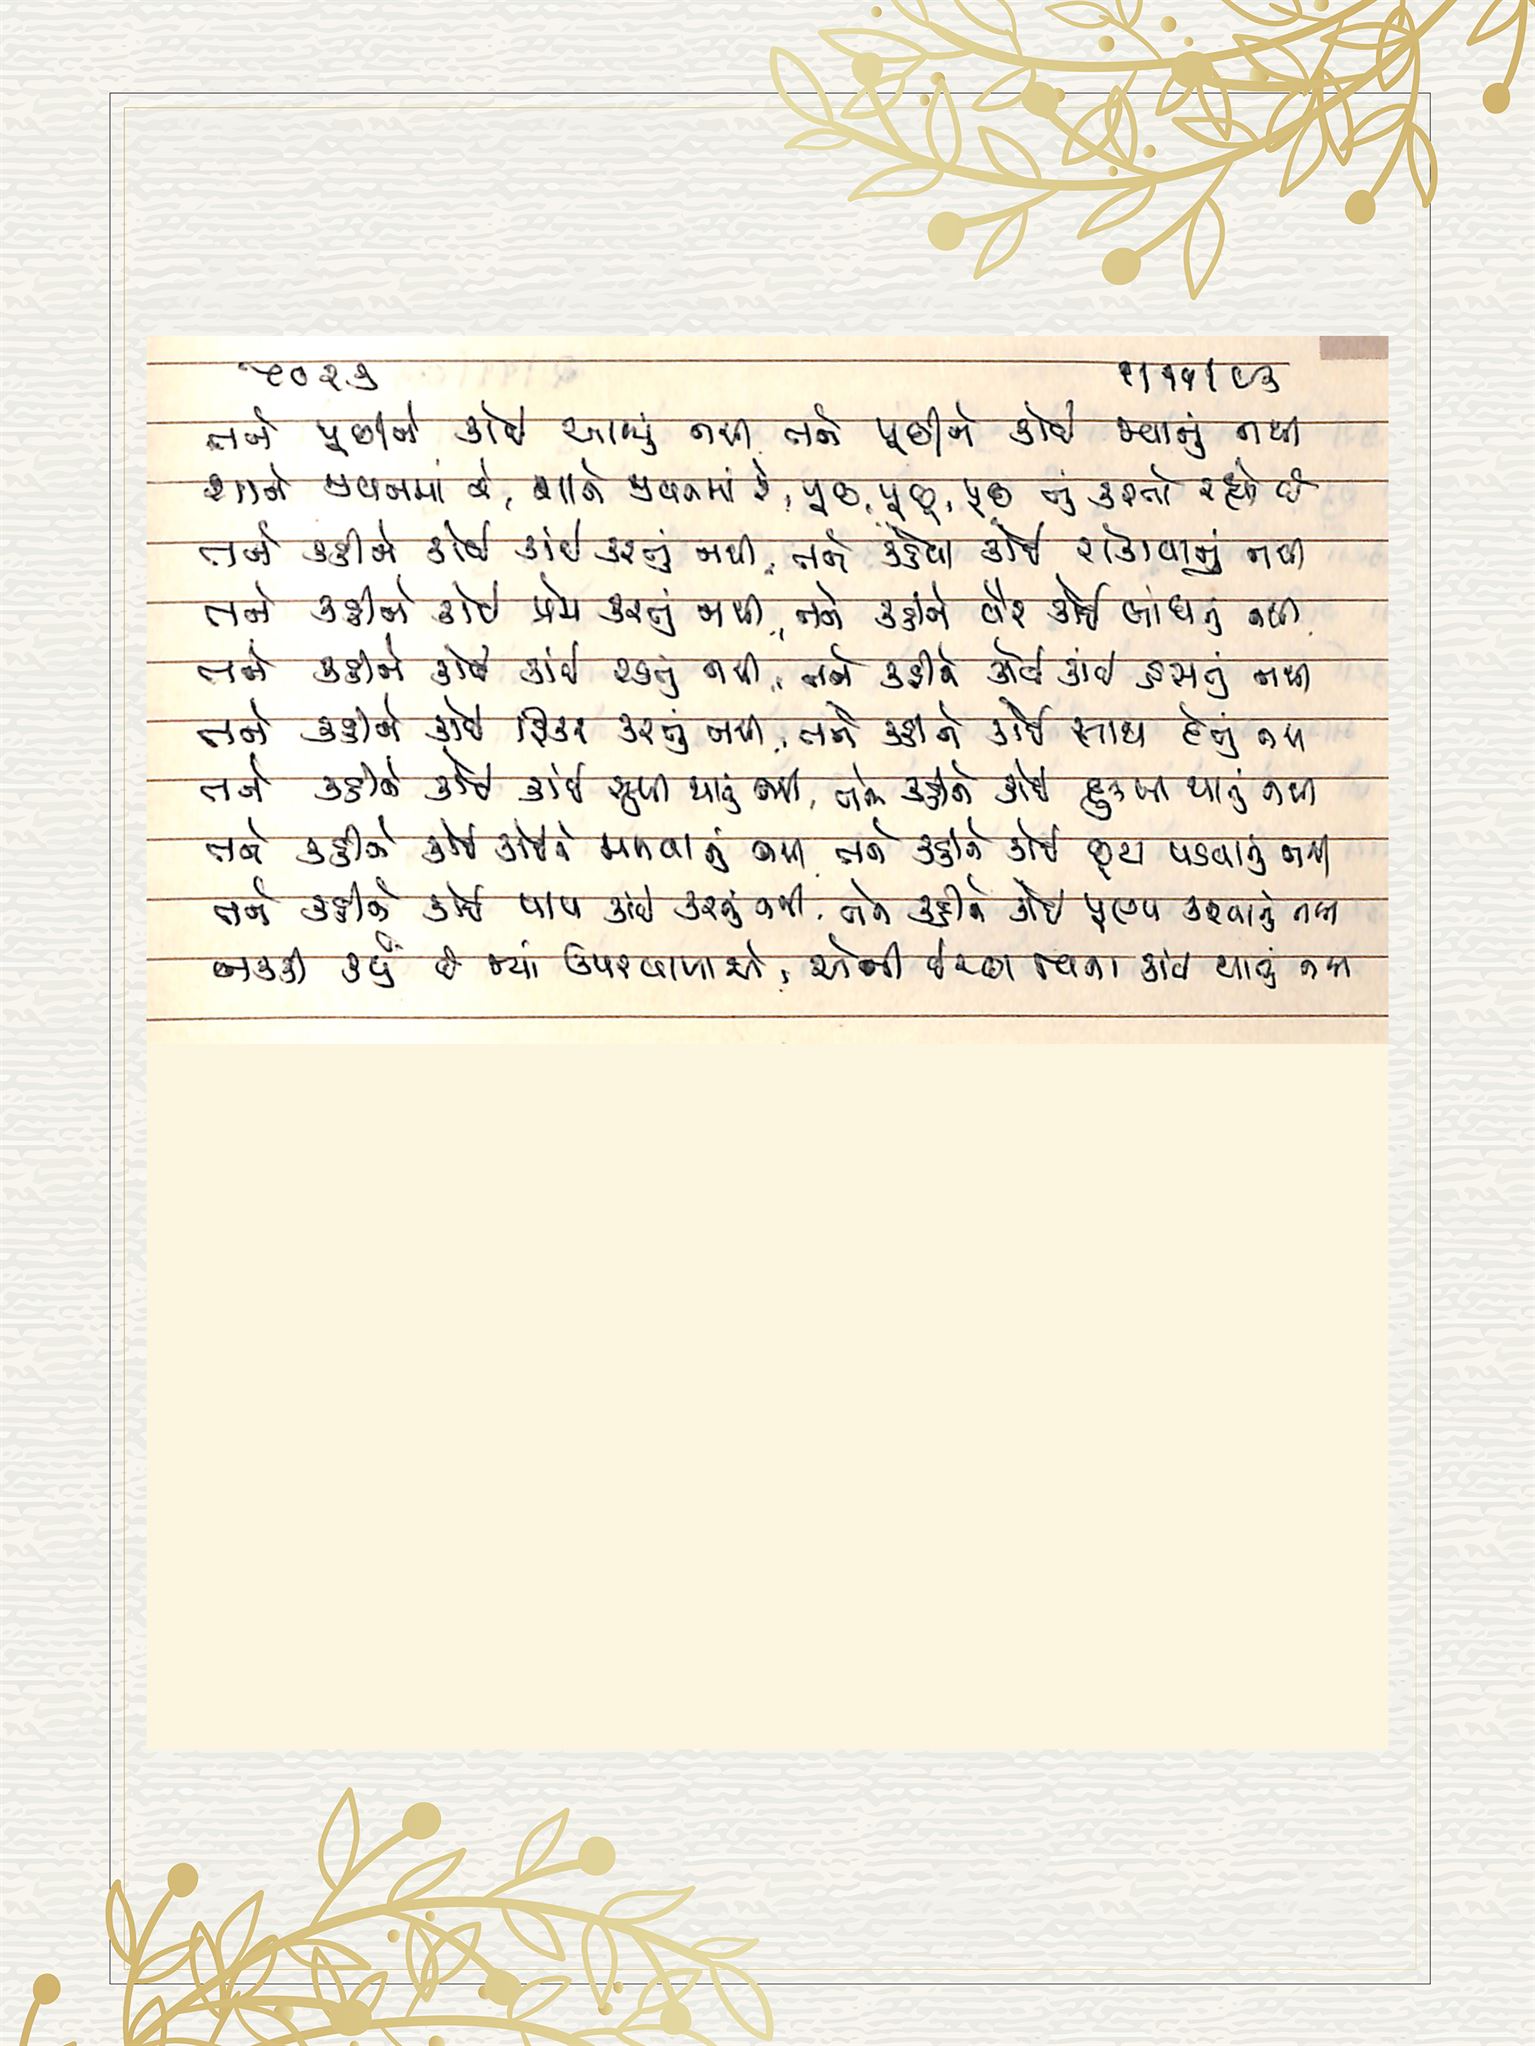 ૫૦૨૩ ૧/૧૧/૯૩
તને પૂછીને કોઈ આવ્યું નથી તને પૂછીને કોઈ જવાનું નથી
શાને જીવનમાં રે, શાને જીવનમાં રે, પૂછ, પૂછ, પૂછ તું કરતો રહ્યો છે
તને કહીને કોઈ કાંઈ કરતું નથી, તને કહેવા કોઈ રોકાવાનું નથી
તને કહીને કોઈ પ્રેમ કરતું નથી, તને કહીને વૈર કોઈ બાંધતું નથી
તને કહીને કોઈ કાંઈ રડતું નથી, તને કહીને કોઈ કાંઈ હસતું નથી
તને કહીને કોઈ ફિકર કરતું નથી, તને કહીને કોઈ સાથ દેતું નથી
તને કહીને કોઈ કાંઈ સુખી થાતું નથી, તને કહીને કોઈ દુઃખી થાતું નથી
તને કહીને કોઈ કોઈને મળવાનું નથી તને કહીને કોઈ છૂટા પડવાનું નથી
તને કહીને કોઈ પાપ કાંઈ કરતું નથી, તને કહીને કોઈ પુણ્ય કરવાનું નથી
નક્કી કર્યું છે જ્યાં ઉપરવાળાએ, એની ઈચ્છા વિના કાંઈ થાતું નથી